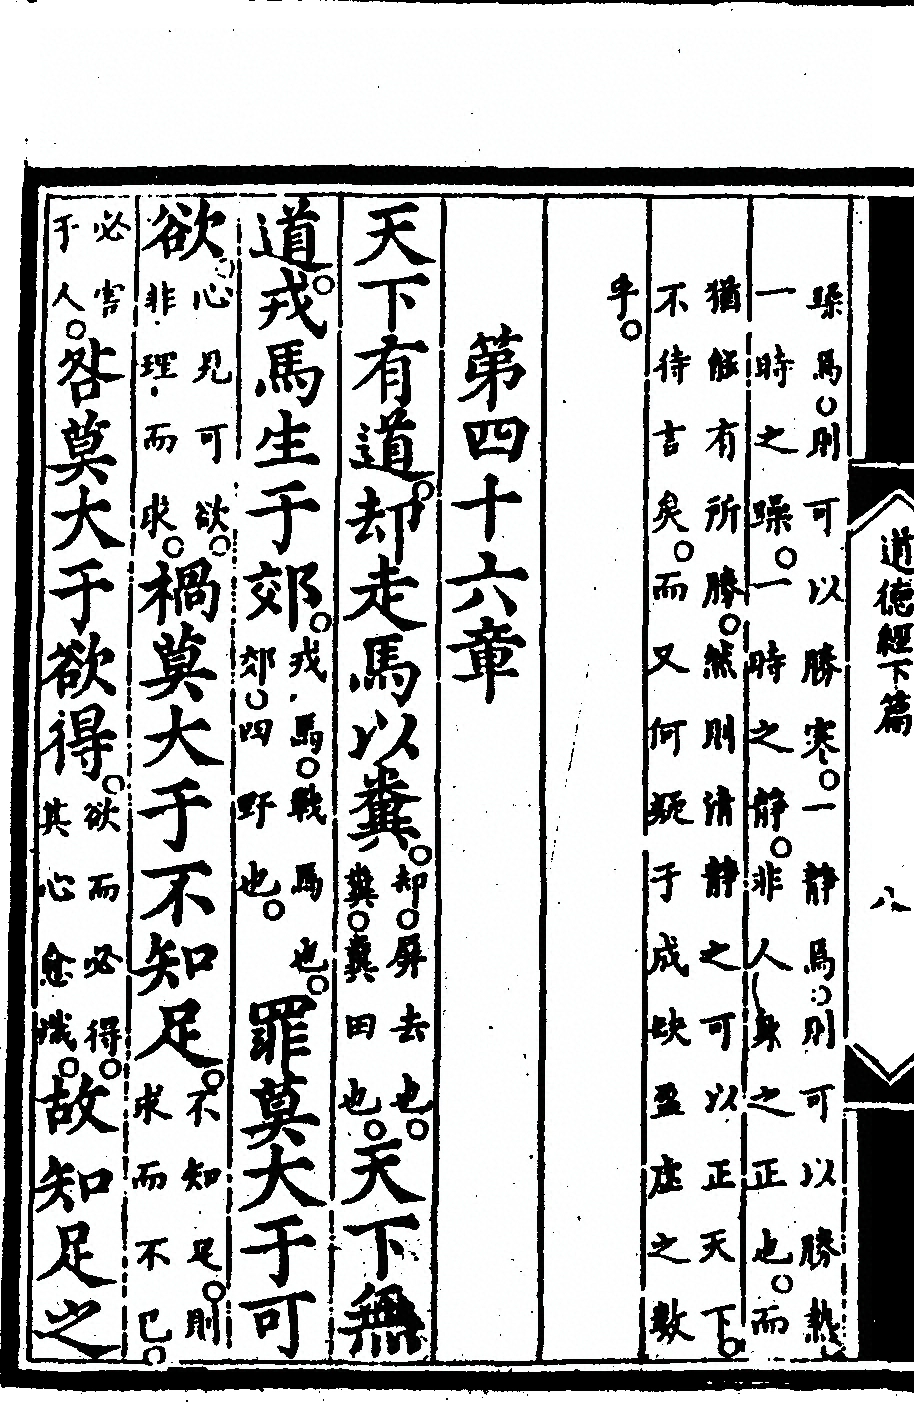 道德經下篇
八
躁焉則可以勝寒一靜焉則可以勝熱
一時之躁一時之靜非人身之正也而
猶能有所勝然則清靜之可以正天下
不待言矣而又何疑于成缺盈虛之數
乎
第四十六章
天下有道却走馬以糞
却屏去也
糞糞田也
天下無
道戎馬生于郊
戎馬戰馬也
郊四野也
罪莫大于可
欲
心見可欲
非理而求
禍莫大于不知足
不知足則
求而不已
必害
于人
咎莫大于欲得
欲而必得
其心愈熾
故知足之